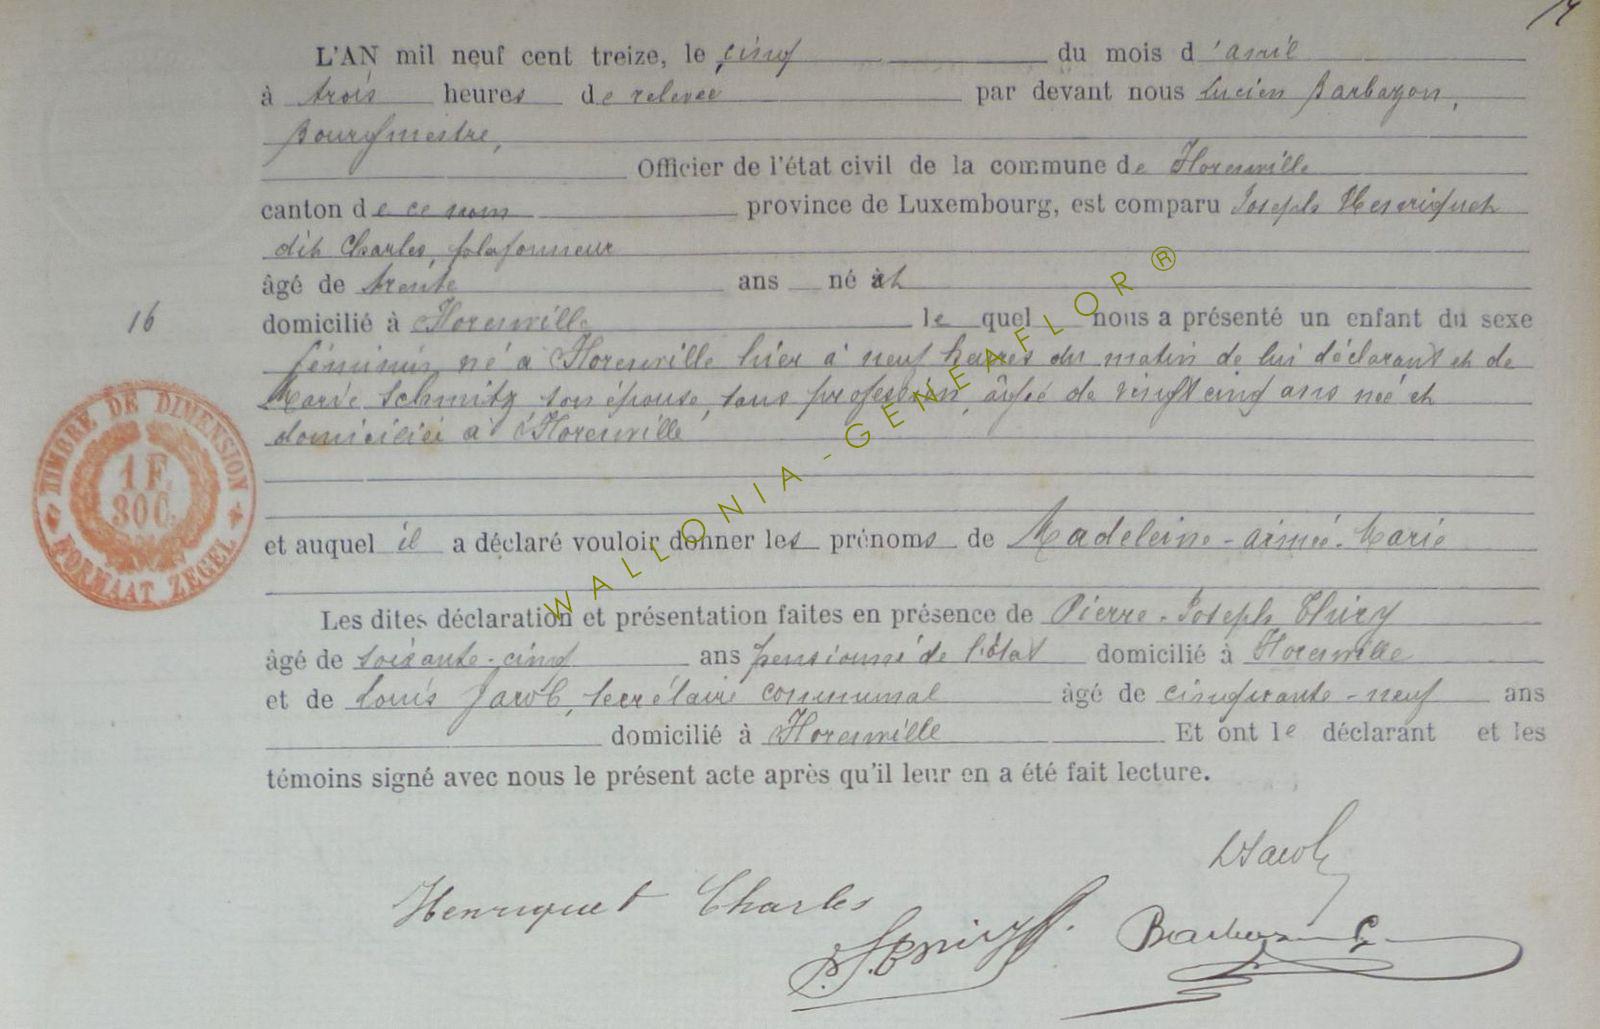 14
L'AN mil neuf cent treize, le cinq du mois d'avril
à trois heures de relevée par devant nous Lucien Barbazon,
Bourgmestre,
Officier de l'état civil de la commune de Florenville
canton de ce nom province de Luxembourg, est comparu Joseph Henriquet
dit Charles, plafonneur
âgé de trente ans né et
16
domicilié à Florenville le quel nous a présenté un enfant du sexe
féminin né à Florenville hier à neuf heures du matin de lui déclarant et de
Marie Schmitz son épouse, sans profession, âgée de vingt cinq ans née et
domiciliée à Florenville
TIMBRE DE DIMENSION
1 F.
30 C.
FORMAAT ZEGEL
et auquel il a déclaré vouloir donner les prénoms de Madeleine-aimée-Marie
Les dites déclaration et présentation faites en présence de Pierre-Joseph Thiry
âgé de soixante-cinq ans pensionné de l'état domicilié à Florenville
et de Louis Jacob, secrétaire communal âgé de cinquante-neuf ans
domicilié à Florenville Et ont le déclarant et les
témoins signé avec nous le présent acte après qu'il leur en a été fait lecture.
LJacob
Henriquet Charles
WALLONIA-GENEAFLOR®